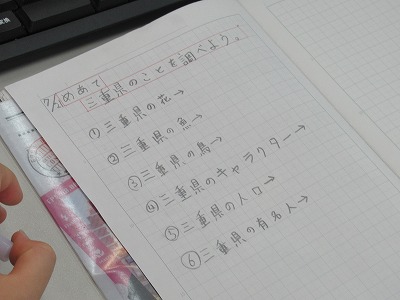 めあて
三重県のことを調べよう。
①三重県の花→
②三重県の魚→
③三重県の鳥→
④三重県のキャラクター→
⑤三重県の人口→
⑥三重県の有名人→